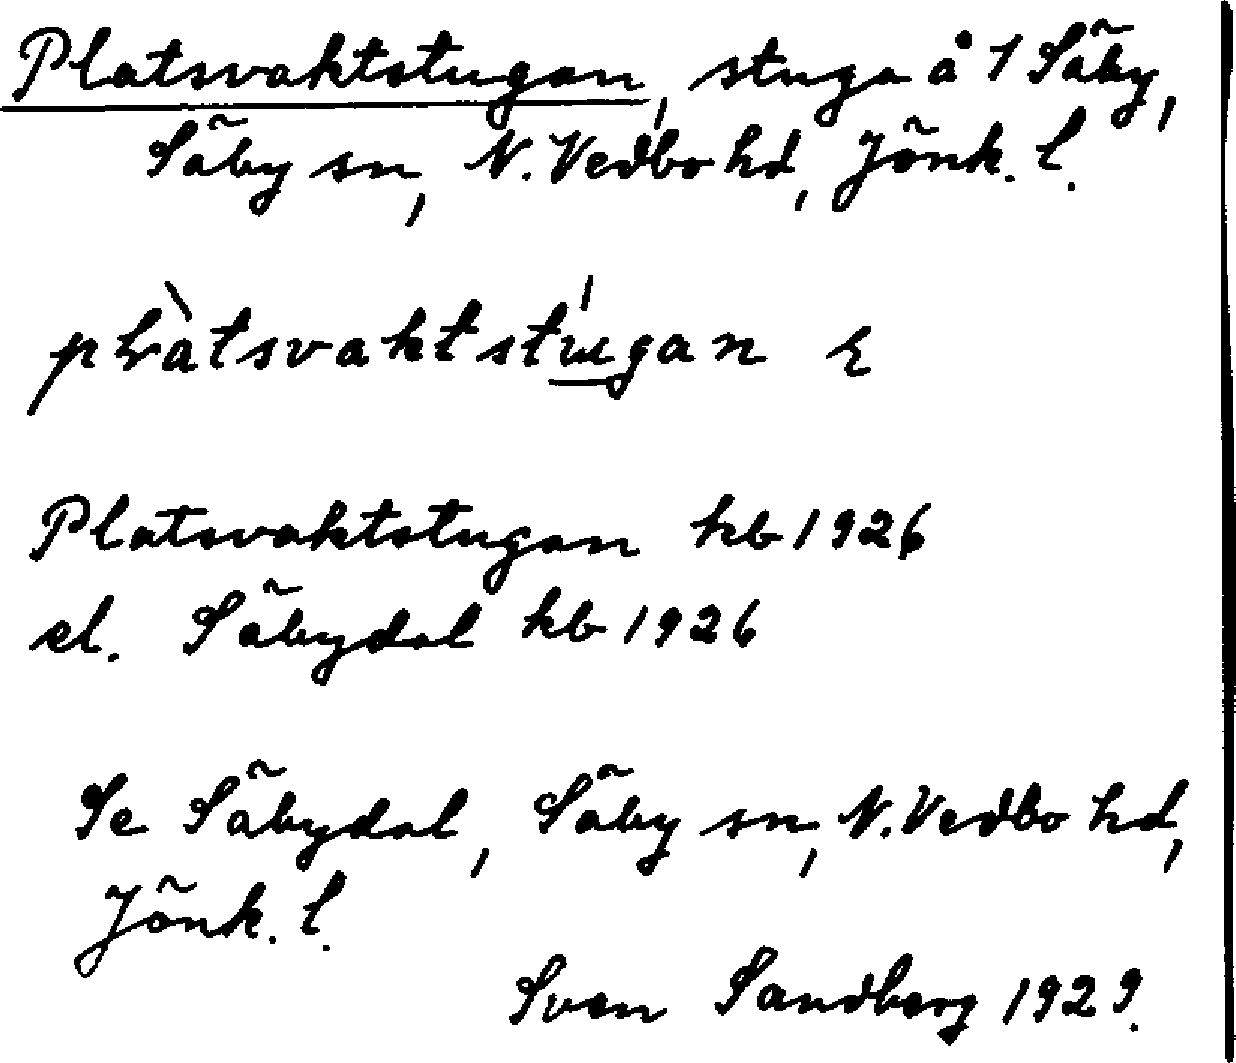 Platsvaktstugan, stuga å 1 Säby,
Säby sn, N. Vedbo hd, Jönk. l.
plàtsvaktstugan
Platsvaktstugan kb 1926
el. Säbydal kb 1926
Se Säbydal, Säby sn, N. Vedbo hd,
Jönk. l.
Sven Sandberg 1929.